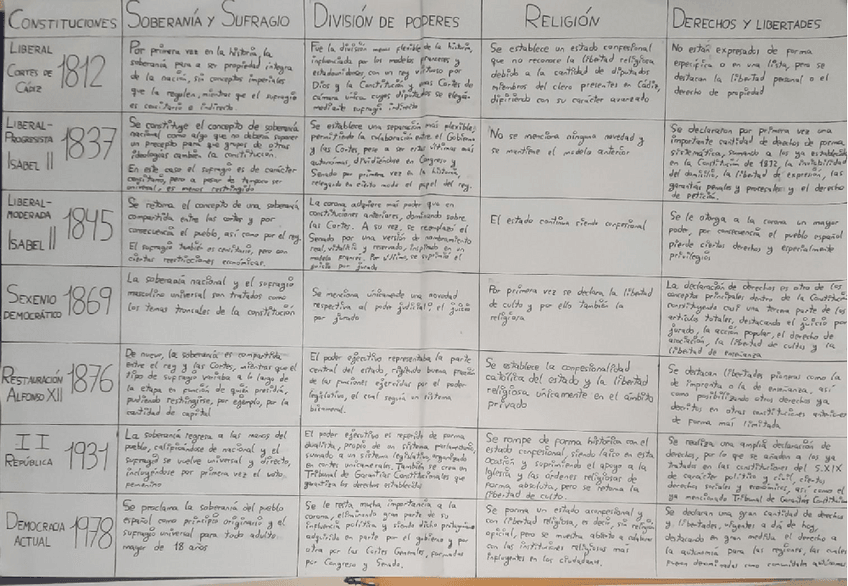 CONSTITUCIONES
SOBERANÍA Y SUFRAGIO
DIVISIÓN DE PODERES
RELIGIÓN
DERECHOS Y LIBERTADES
LIBERAL
CORTES DE
CÁDIZ
1812
Por primera vez en la historia, la
soberanía pasa a ser propiedad íntegra
de la nación, sin conceptos imperiales
que la regulen, mientras que el sufragio
es censitario o indirecto
Fue la división menos flexible de la historia,
influenciada por los modelos franceses y
estadounidenses, con un rey virtuoso por
Dios y la Constitución, y unas Cortes de
cámara única cuyos diputados se elegían
mediante sufragio indirecto
Se establece un estado confesional
que no reconoce la libertad religiosa
debido a la cantidad de diputados
miembros del clero presentes en Cádiz,
difiriendo con su carácter avanzado
No están expresados de forma
específica o en una lista, pero se
destacan la libertad personal o el
derecho de propiedad
LIBERAL-
PROGRESISTA
ISABEL II
1837
Se constituye el concepto de soberanía
nacional como algo que no debería suponer
un precepto para que grupos de otras
ideologías cambien la constitución.
En este caso el sufragio es de carácter
censitario, pero a pesar de tampoco ser
universal, es menos restringido
Se establece una separación más flexible,
permitiendo la colaboración entre el Gobierno
y las Cortes, pero a ser estas últimas más
autónomas, dividiéndose en Congreso y
Senado por primera vez en la historia,
relegando en cierto modo el papel del rey.
No se menciona ninguna novedad y
se mantiene el modelo anterior
Se declararon por primera vez una
importante cantidad de derechos de forma
sistemática, sumando a los ya establecidos
en la Constitución de 1812, la inviolabilidad
del domicilio, la libertad de expresión, las
garantías penales y procesales y el derecho
de petición.
LIBERAL-
MODERADA
ISABEL II
1845
Se retoma el concepto de una soberanía
compartida entre las cortes y por
consecuencia el pueblo, así como por el rey.
El sufragio también es censitario, pero con
ciertas restricciones económicas.
La corona adquiere más poder que en
constituciones anteriores, dominando sobre
las Cortes. A su vez, se reemplazó el
Senado por una versión de nombramiento
real, vitalicio y reservado, inspirado en un
modelo francés. Por último, se suprimió el
juicio por jurado
El estado continua siendo confesional
Se le otorga a la corona un mayor
poder, por consecuencia el pueblo español
pierde ciertos derechos y especialmente
privilegios
SEXENIO
DEMOCRÁTICO
1869
La soberanía nacional y el sufragio
masculino universal son tratados como
los temas troncales de la constitución
Se menciona únicamente una novedad
respectiva al poder judicial, el juicio
por jurado
Por primera vez se declara la libertad
de culto y por ello también la
religiosa
La declaración de derechos es otro de los
conceptos principales dentro de la Constitución
constituyendo casi una tercera parte de los
artículos totales, destacando el juicio por
jurado, la acción popular, el derecho de
asociación, la libertad de cultos y la
libertad de enseñanza
RESTAURACIÓN
ALFONSO XII
1876
De nuevo, la soberanía es compartida
entre el rey y las Cortes, mientras que el
tipo de sufragio variaba a lo largo de
la etapa en función de quién presidía,
pudiendo restringirse, por ejemplo, por la
cantidad de capital
El poder ejecutivo representaba la parte
central del estado, rigiendo buena parte
de las funciones ejercidas por el poder
legislativo, el cual seguía un sistema
bicameral.
Se establece la confesionalidad
católica del estado y la libertad
religiosa únicamente en el ámbito
privado
Se destacan libertades pioneras como la
de imprenta o la de enseñanza, así
como posibilitando otros derechos ya
descritos en otras constituciones anteriores
de forma más limitada
II
REPÚBLICA
1931
La soberanía regresa a las manos del
pueblo, calificándose de nacional y el
sufragio se vuelve universal y directo,
incluyéndose por primera vez el voto
femenino
El poder ejecutivo es ejercido de forma
dualista, propio de un sistema parlamentario,
sumado a un sistema legislativo organizado
en cortes unicamerales. También se crea un
Tribunal de Garantías Constitucionales que
garantiza los derechos establecidos
Se rompe de forma histórica con el
estado confesional, siendo laico en esta
ocasión y suprimiendo el apoyo a la
Iglesia y las órdenes religiosas de
forma absoluta, pero se retoma la
libertad de culto.
Se realiza una amplia declaración de
derechos, por lo que se añaden a los ya
tratados en las constituciones del S.XIX
de carácter político y civil, ciertos
derechos sociales y económicos, así como el
ya mencionado Tribunal de Garantías Constitucionales
DEMOCRACIA
ACTUAL
1978
Se proclama la soberanía del pueblo
español como principio originario y el
sufragio universal para todo adulto
mayor de 18 años
Se le resta mucha importancia a la
corona, eliminando gran parte de su
influencia política y siendo dicho protagonismo
adquirido en parte por el gobierno y por
otra por las Cortes Generales, formadas
por Congreso y Senado.
Se forma un estado aconfesional y
con libertad religiosa, es decir, sin religión
oficial, pero se muestra abierto a colaborar
con las instituciones religiosas más
influyentes en los ciudadanos.
Se declaran una gran cantidad de derechos
y libertades, vigentes a día de hoy,
destacando en gran medida el derecho a
la autonomía para las regiones, las cuales
fueron denominadas como comunidades autónomas